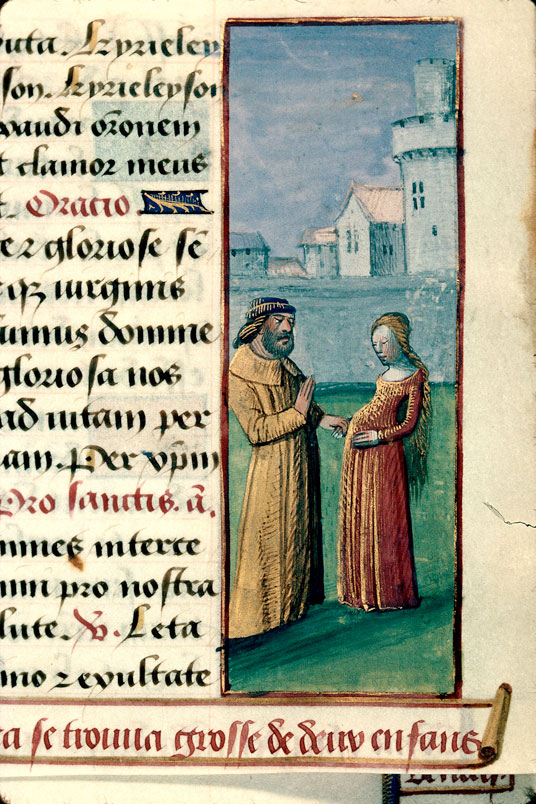 uta. kyrieley
son. kyrieleyson
xaudi orōnem
t clamor meus
t. Oratio
er gloriose sē
qꝫ uirginis
sumus domine
gloriosa nos
ad uitam per
am. Per xp̄m
Pro sanctis. ā.
mnes interce
nim pro nostra
lute. ℣. Leta
mino ⁊ exultate
ta se trouua grosse de deux enfans